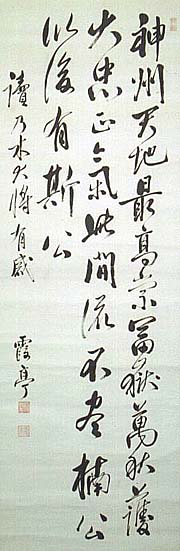 神州天地最高崇富嶽萬秋護
大忠正氣此間流不盡楠公
以後有斯公
讀乃木大將有感
霞亭